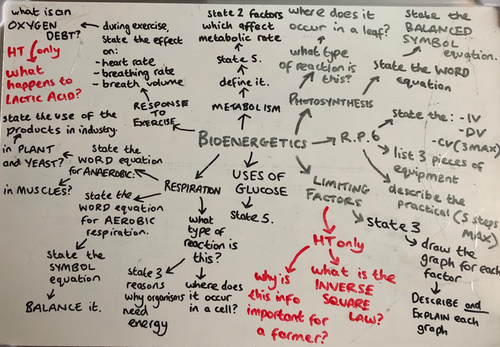 what is an
OXYGEN
DEBT?
HT only
what
happens to
LACTIC ACID?
during exercise
State the effect
on:
- heart rate
- breathing rate
- breath volume
RESPONSE
TO
EXERCISE
State 2 factors
which affect
metabolic rate
State 5.
define it.
METABOLISM
where does it
occur in a leaf?
what type
of reaction is
this?
PHOTOSYNTHESIS
State the
BALANCED
SYMBOL
equation.
State the WORD
equation
BIOENERGETICS
R.P.6
State the: - IV
- DV
- CV (3 MAX)
list 3 pieces of
equipment
describe the
practical (5 steps
MAX)
LIMITING
FACTORS
State 3
draw the
graph for each
factor
DESCRIBE and
EXPLAIN each
graph
HT only
what is the
INVERSE
SQUARE
LAW?
why is
this info
important for
a farmer?
USES OF
GLUCOSE
State 5.
RESPIRATION
State the
WORD equation
for ANAEROBIC:
in PLANT
and YEAST?
State the use of the
products in industry.
in MUSCLES?
State the
WORD equation
for AEROBIC
respiration.
State the
SYMBOL
equation
BALANCE it.
what
type of
reaction is
this?
State 3
reasons
why organisms
need
energy
where does
it occur
in a cell?